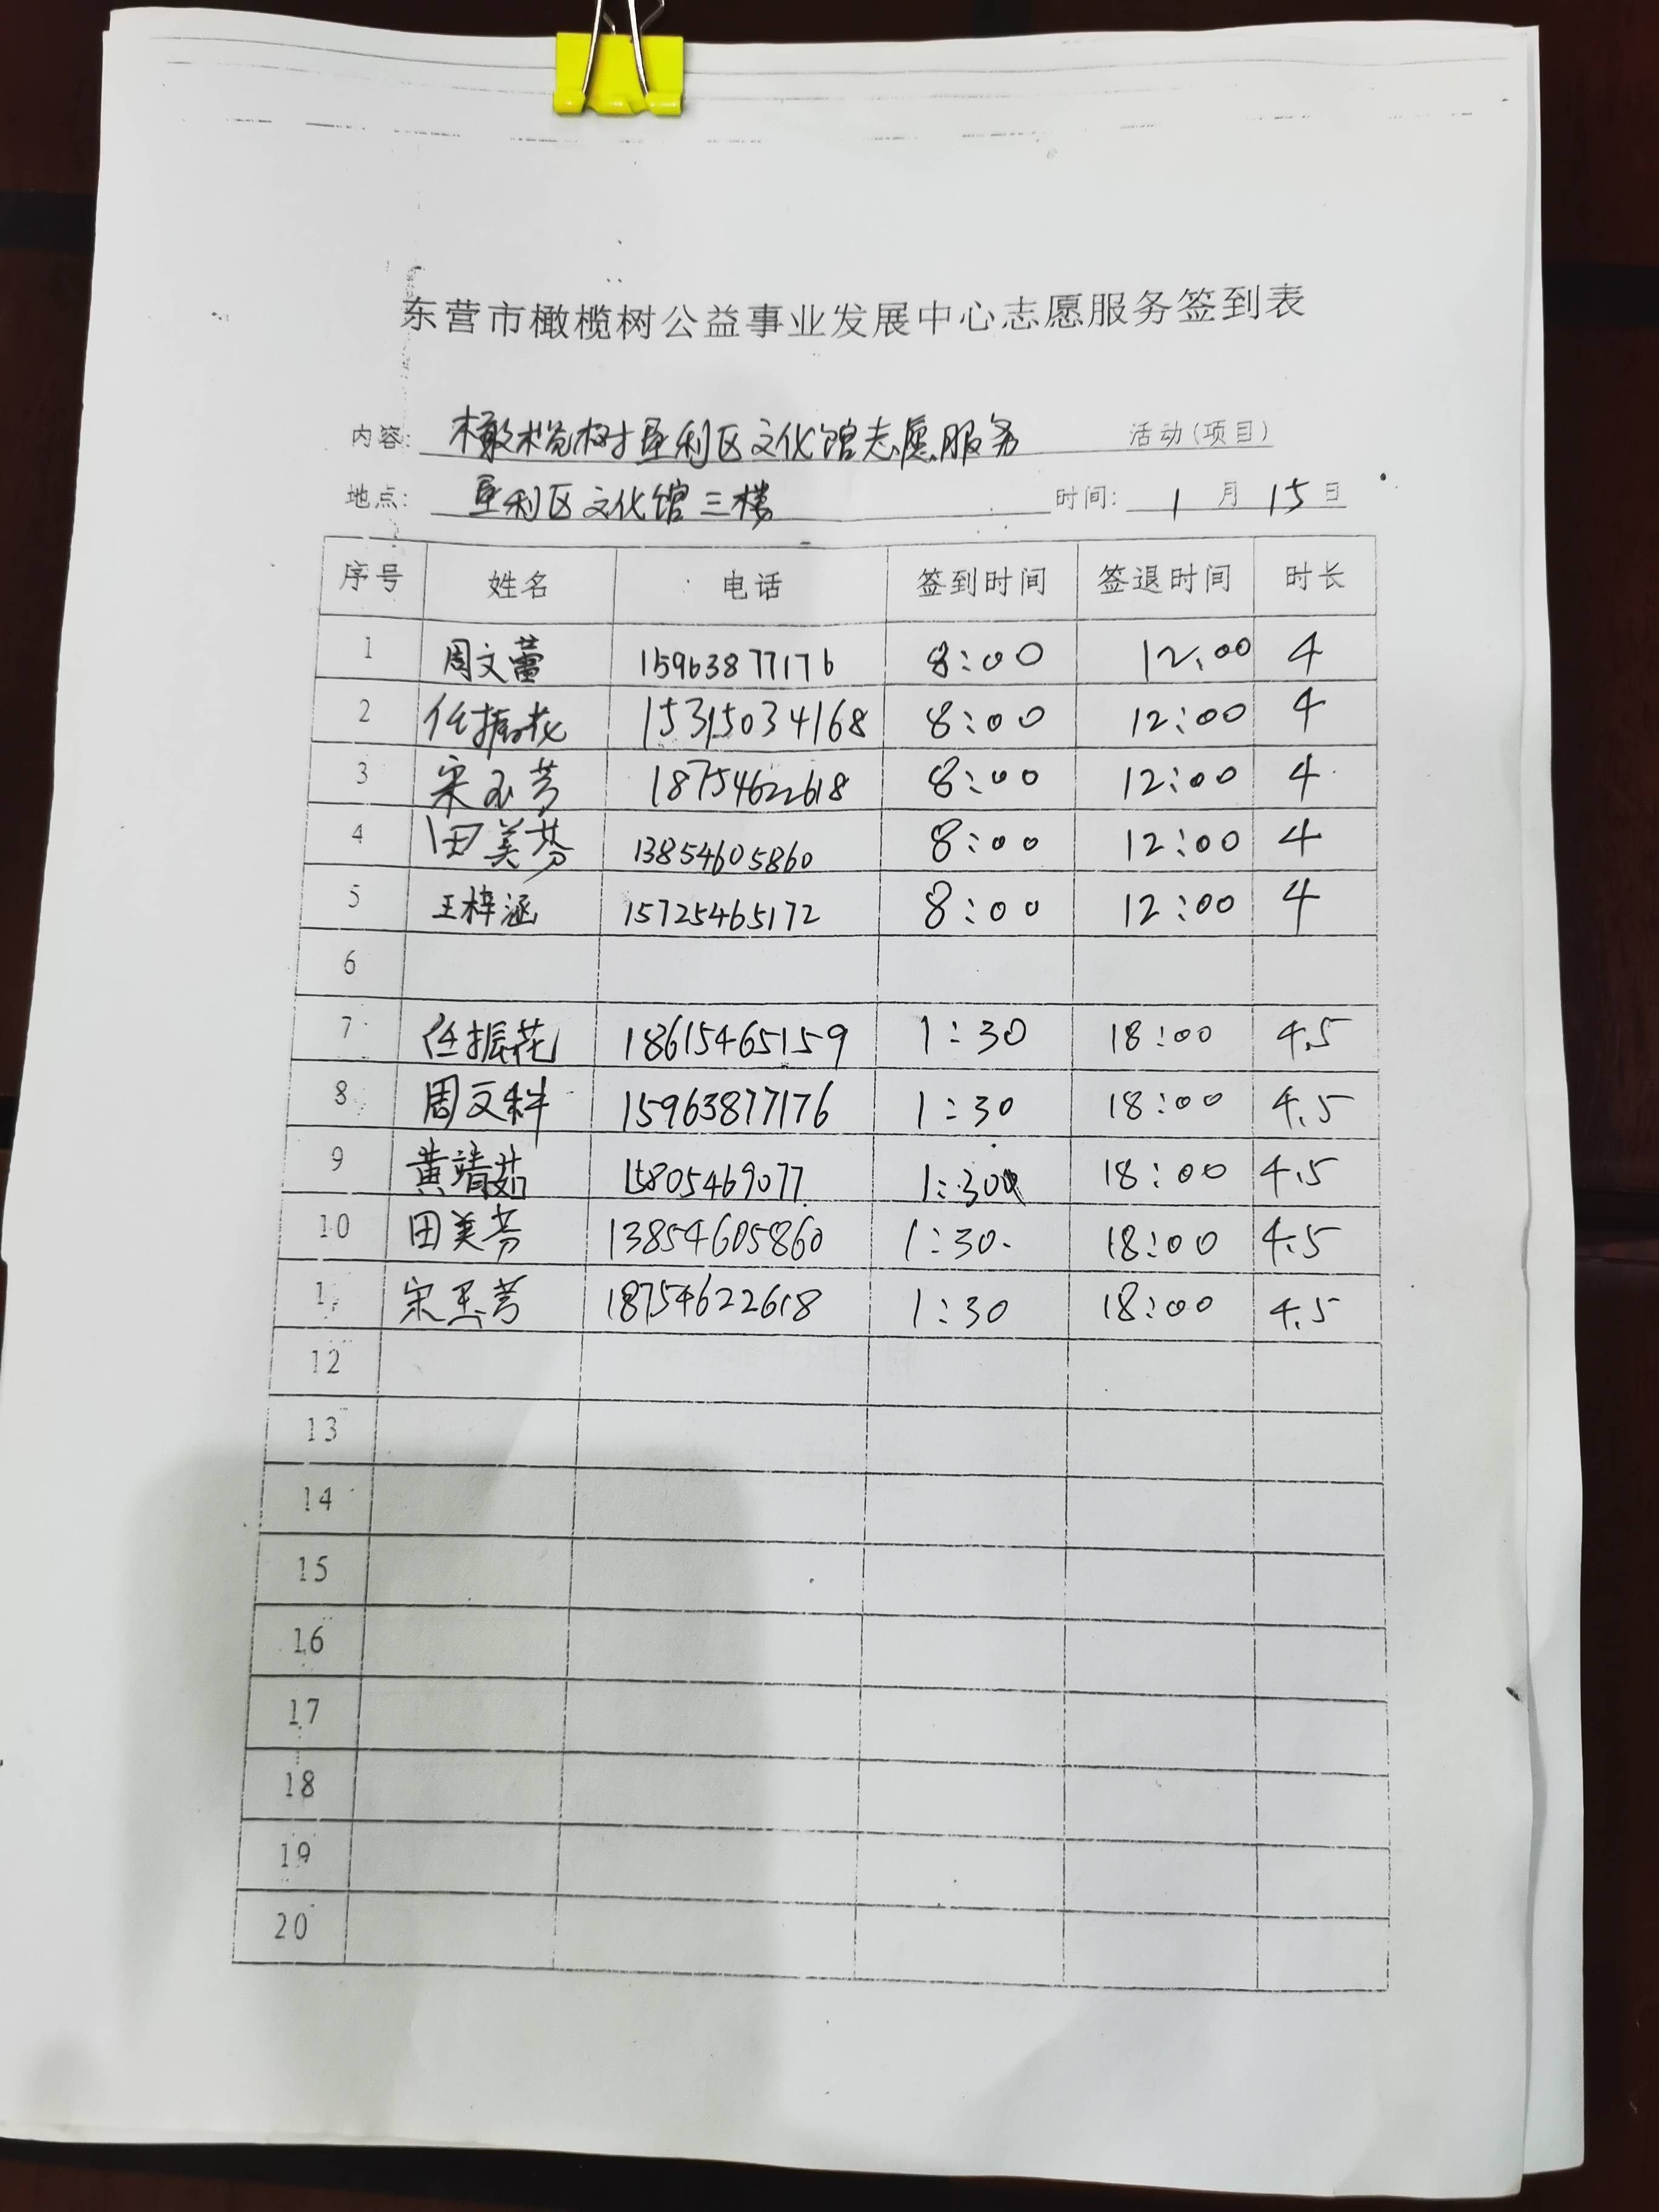 东营市橄榄树公益事业发展中心志愿服务签到表
内容: 橄榄树垦利区文化馆志愿服务 活动(项目)
地点: 垦利区文化馆三楼 时间: 1 月 15 日
序号 姓名 电话 签到时间 签退时间 时长
1 周文蕾 15963877176 8:00 12:00 4
2 任振花 15315034168 8:00 12:00 4
3 宋玉芳 18754622618 8:00 12:00 4
4 田美芬 13854605860 8:00 12:00 4
5 王梓涵 15725465172 8:00 12:00 4
6
7 任振花 18615465159 1:30 18:00 4.5
8 周文 15963877176 1:30 18:00 4.5
9 黄靖茹 15805469077 1:30 18:00 4.5
10 田美芬 13854605860 1:30 18:00 4.5
1 宋玉芳 18754622618 1:30 18:00 4.5
12
13
14
15
16
17
18
19
20